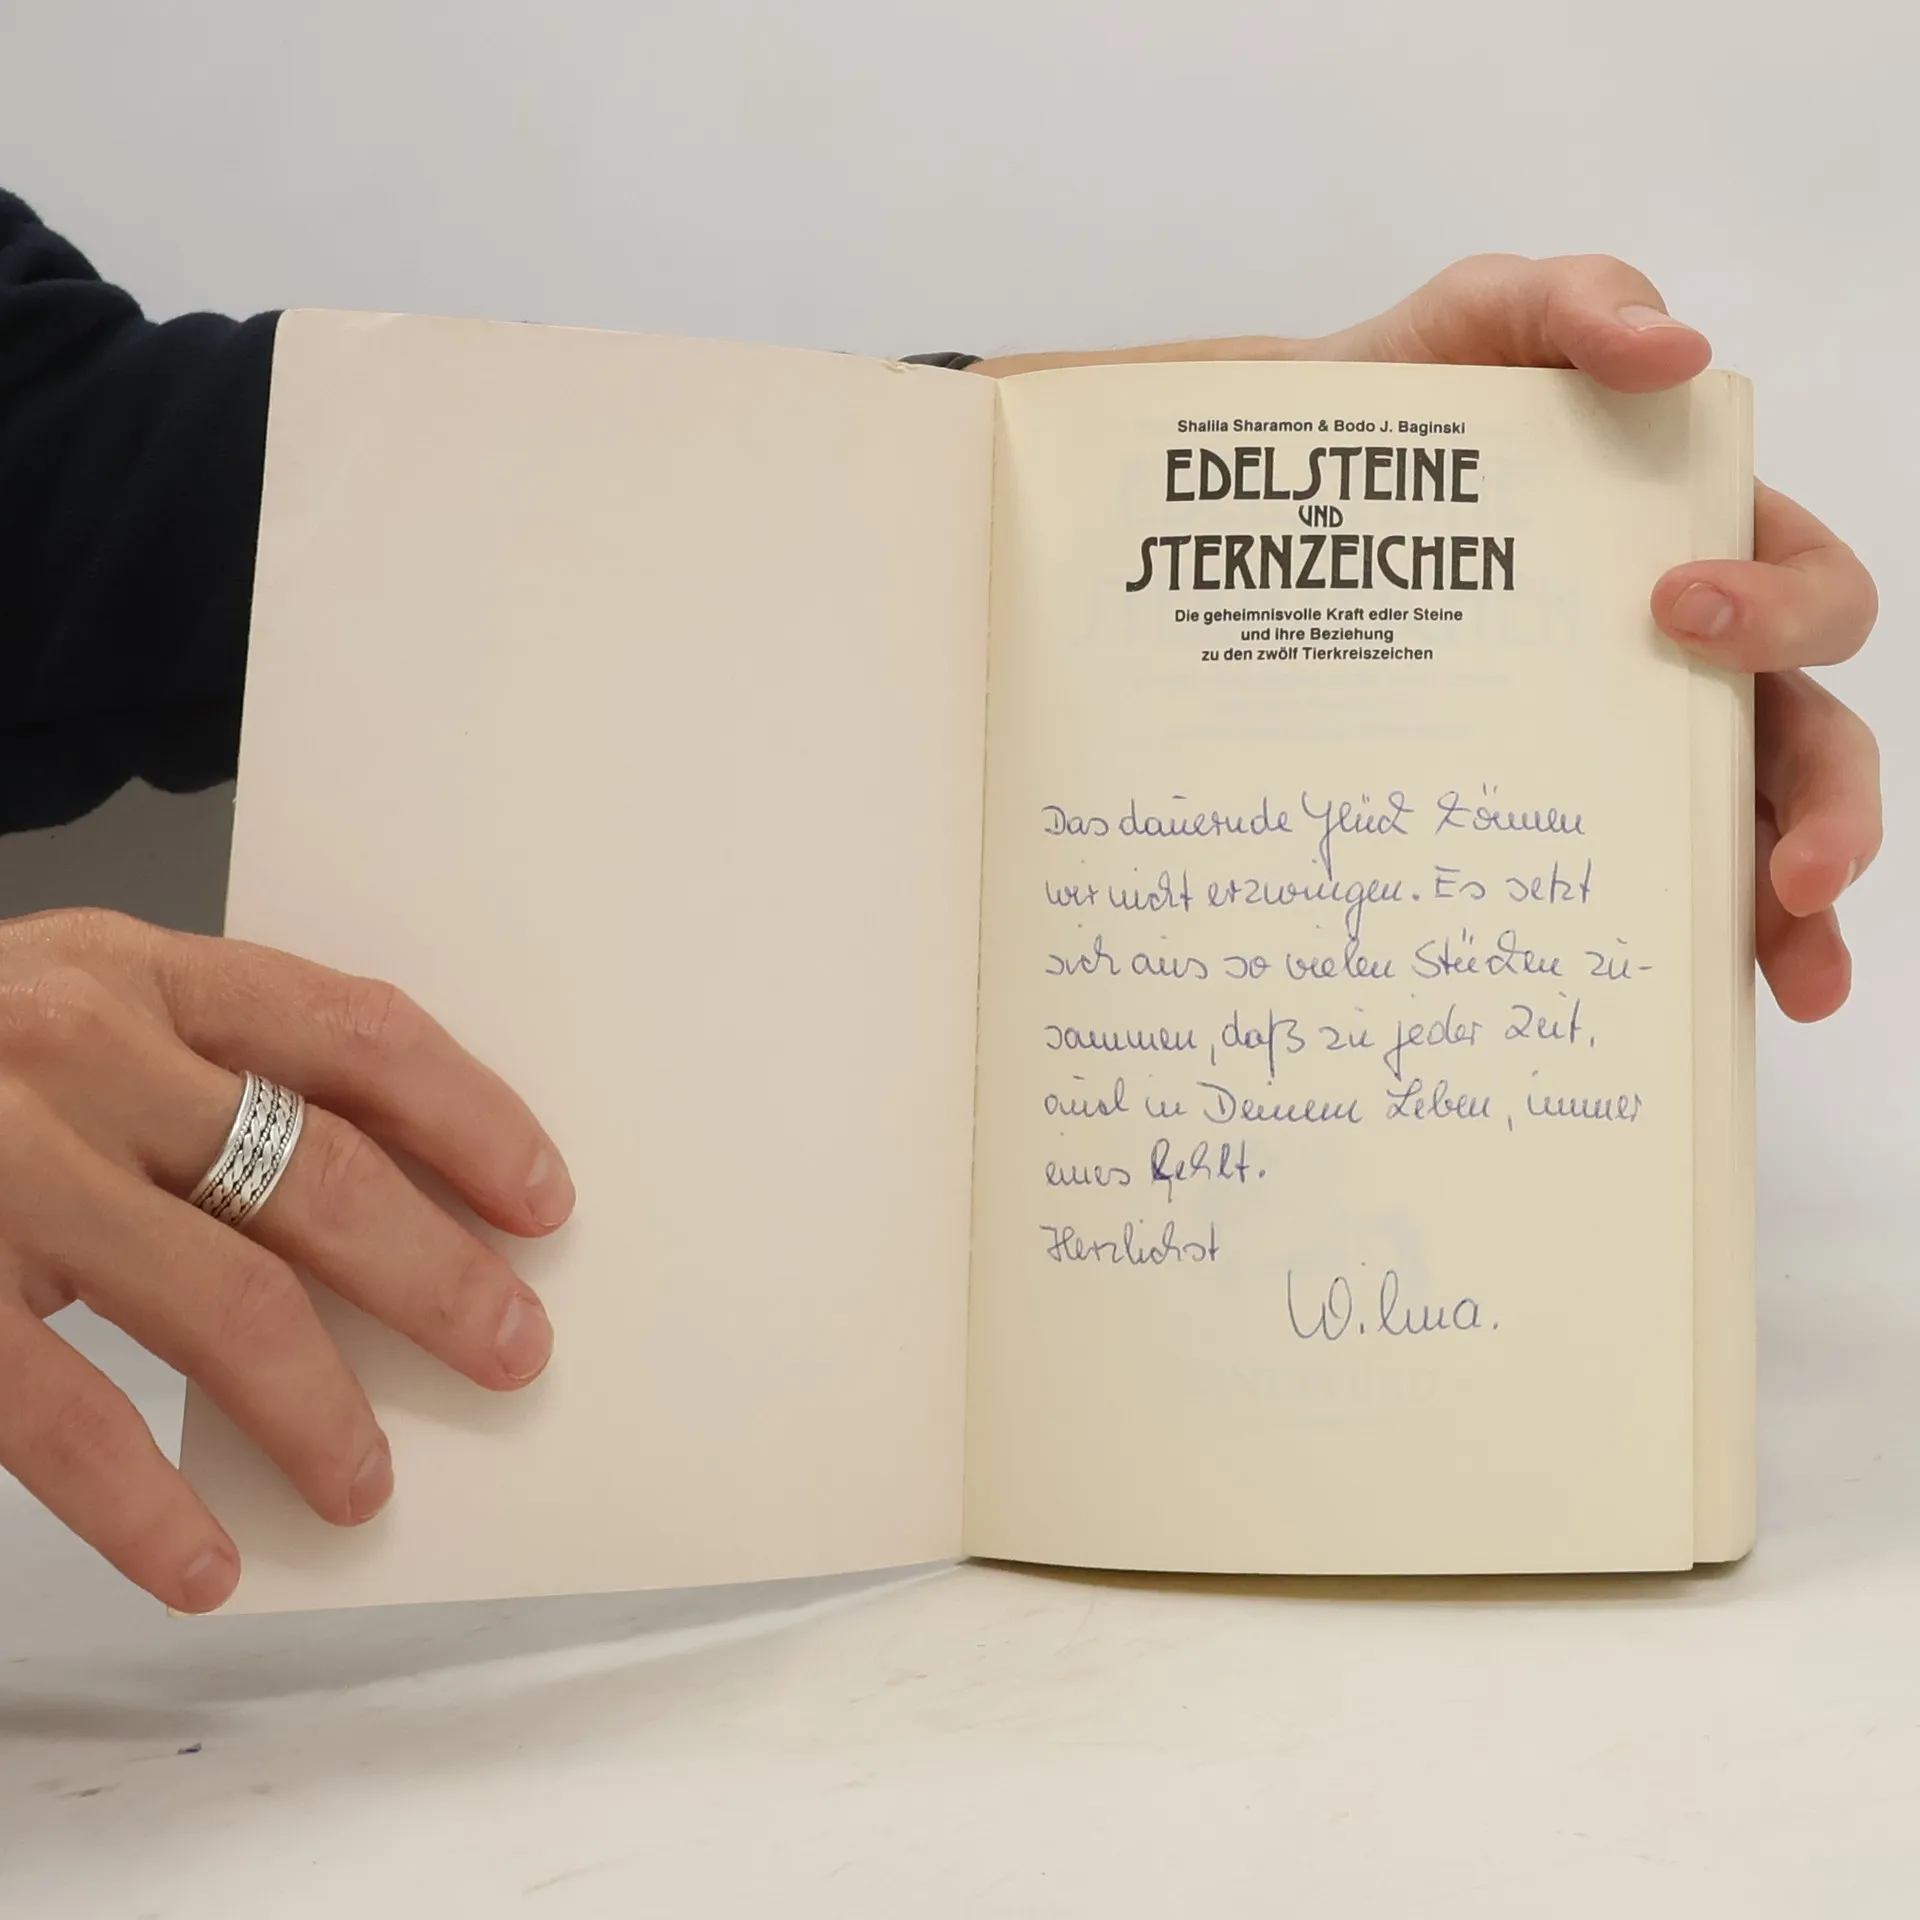 Shalila Sharamon & Bodo J. Baginski
EDELSTEINE
UND
STERNZEICHEN
Die geheimnisvolle Kraft edler Steine
und ihre Beziehung
zu den zwölf Tierkreiszeichen
Das dauernde Glück können
wir nicht erzwingen. Es setzt
sich aus so vielen Stücken zu-
sammen, daß zu jeder Zeit,
auch in Deinem Leben, immer
eines fehlt.
Herzlichst
Wilma.